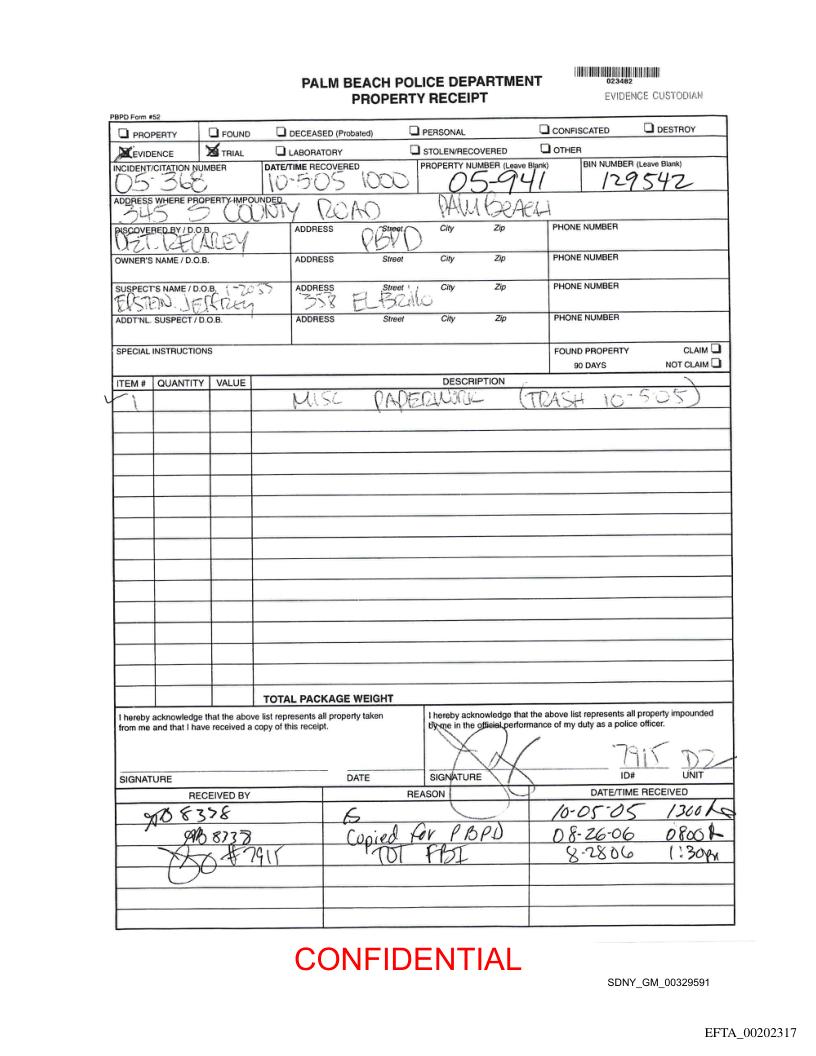 PALM BEACH POLICE DEPARTMENT
PROPERTY RECEIPT
023482
EVIDENCE CUSTODIAN
PBPD Form #52
PROPERTY FOUND DECEASED (Probated) PERSONAL CONFISCATED DESTROY
EVIDENCE TRIAL LABORATORY STOLEN/RECOVERED OTHER
INCIDENT/CITATION NUMBER DATE/TIME RECOVERED PROPERTY NUMBER (Leave Blank) BIN NUMBER (Leave Blank)
05-368 10-505 1000 05-941 129542
ADDRESS WHERE PROPERTY IMPOUNDED
345 S COUNTY ROAD PALM BEACH
DISCOVERED BY / D.O.B. ADDRESS Street City Zip PHONE NUMBER
DET. RECAREY PBPD
OWNER'S NAME / D.O.B. ADDRESS Street City Zip PHONE NUMBER
SUSPECT'S NAME / D.O.B. ADDRESS Street City Zip PHONE NUMBER
EPSTEIN, JEFFREY 358 EL BRILLO
ADDT'NL. SUSPECT / D.O.B. ADDRESS Street City Zip PHONE NUMBER
SPECIAL INSTRUCTIONS FOUND PROPERTY CLAIM
90 DAYS NOT CLAIM
ITEM # QUANTITY VALUE DESCRIPTION
1 MISC PAPERWORK (TRASH 10-505)
TOTAL PACKAGE WEIGHT
I hereby acknowledge that the above list represents all property taken
from me and that I have received a copy of this receipt.
I hereby acknowledge that the above list represents all property impounded
by me in the official performance of my duty as a police officer.
7915 D2
SIGNATURE DATE SIGNATURE ID# UNIT
RECEIVED BY REASON DATE/TIME RECEIVED
10-05-05
Copied for PBPD 08-26-06
#7915 TOT FBI 8-2806 1:30pm
CONFIDENTIAL
SDNY_GM_00329591
EFTA_00202317